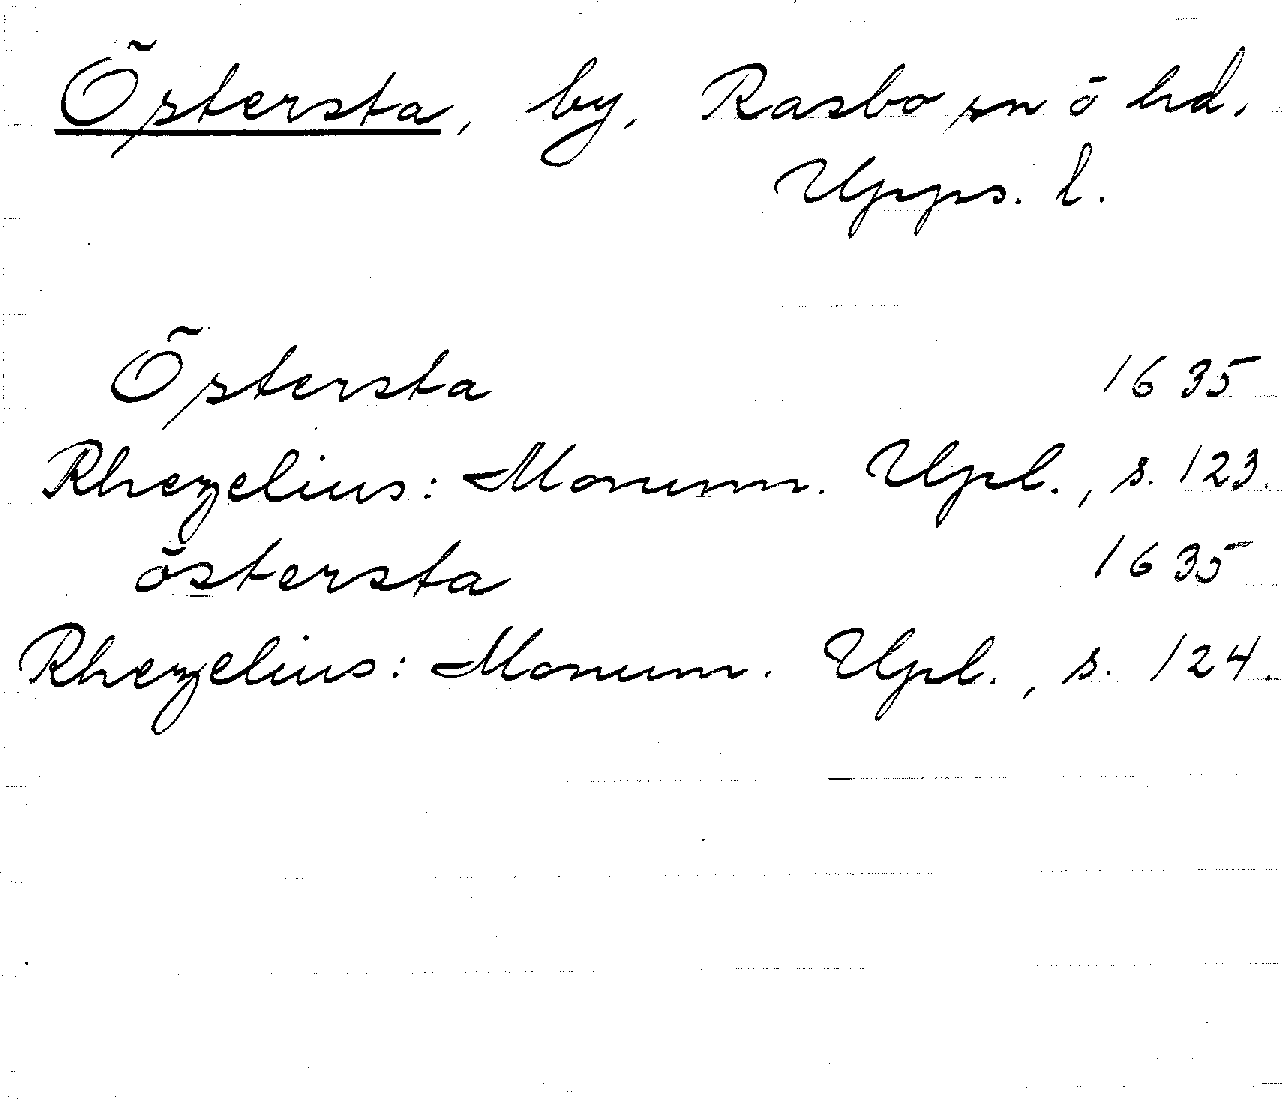 Östersta, by, Rasbo sn o hd,
Upps. l.
Östersta 1635
Rhezelius: Monum. Upl., s. 123.
östersta 1635
Rhezelius: Monum. Upl., s. 124.